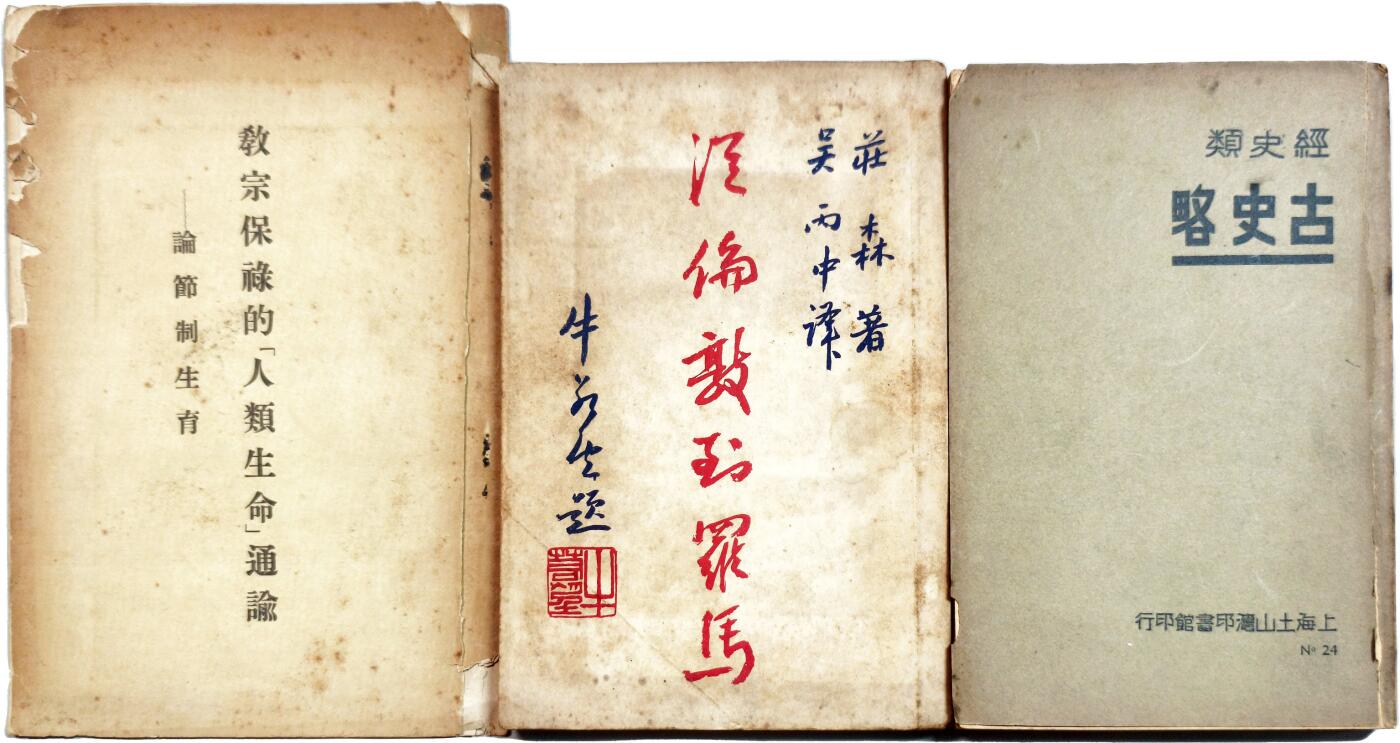 教宗保祿的「人類生命」通諭
——論節制生育
莊森著
吳丙中譯
從倫敦到羅馬
牛若望題
經史類
古史略
上海土山灣印書館印行
No 24